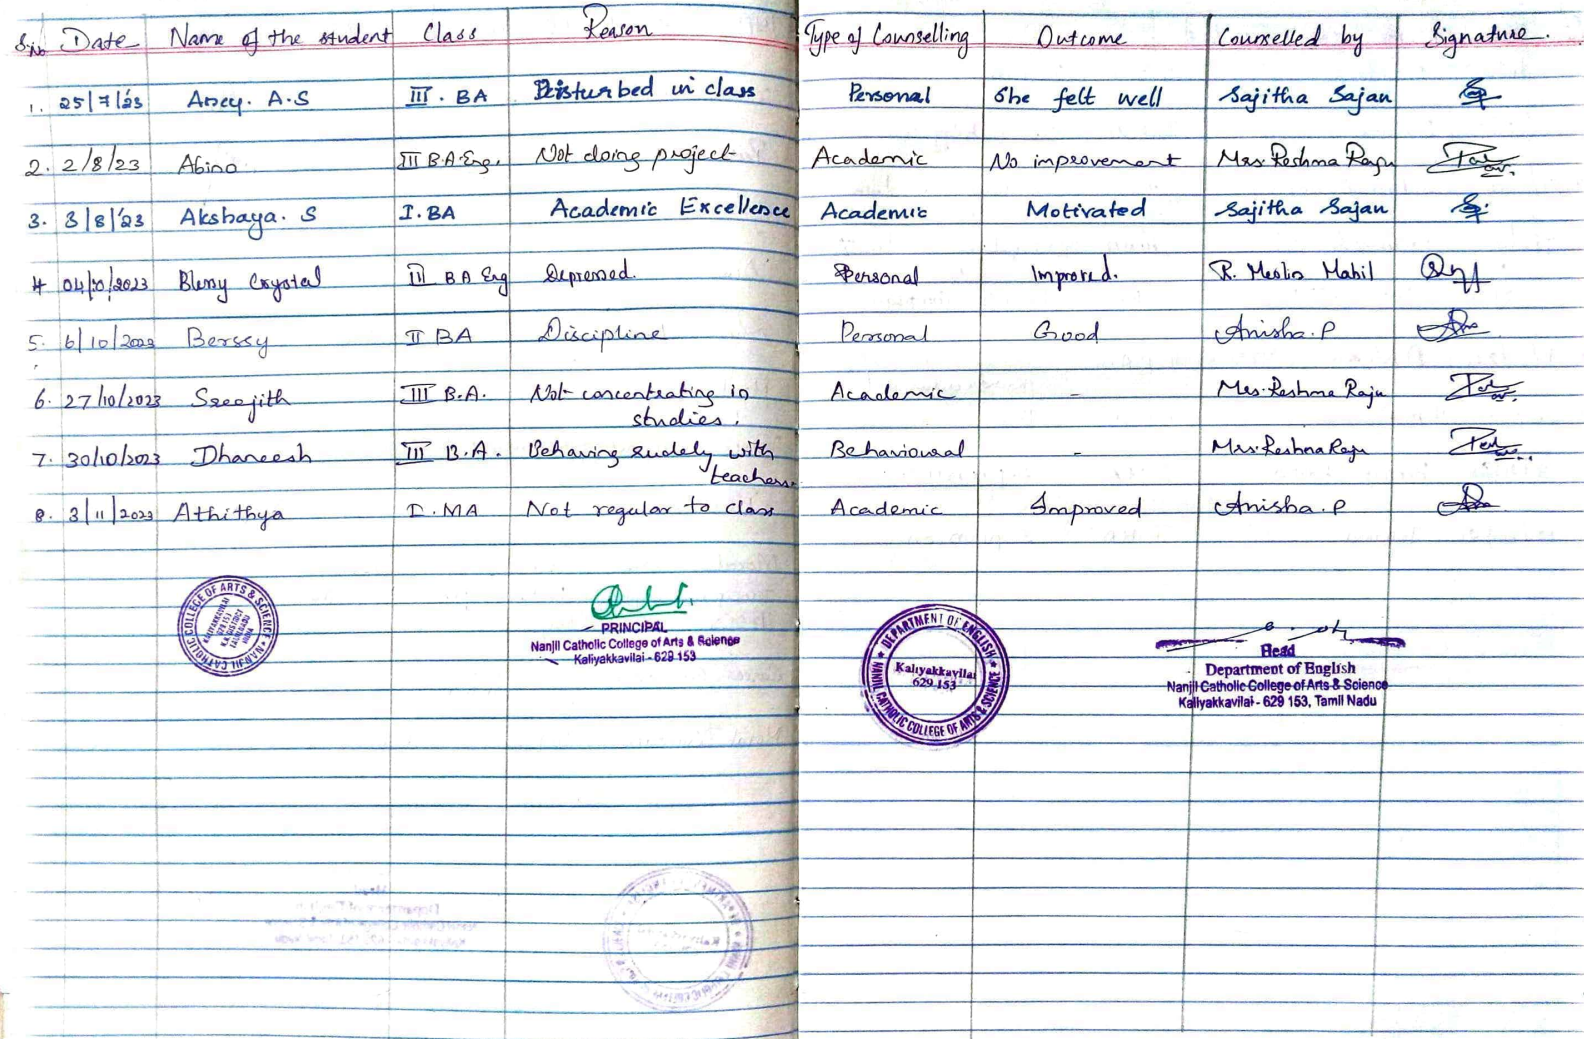 S.No Date Name of the student Class Reason Type of Counselling Outcome Counselled by Signature.
1. 25/7/23 A.S III. BA Disturbed in class Personal She felt well Sajitha Sajan
2. 2/8/23 Abino III B.A. Eng. Not doing project Academic No improvement Mrs. Reshma Raju
3. 3/8/'23 Akshaya. S I. BA Academic Excellence Academic Motivated Sajitha Sajan
4 04/10/2023 Blessy Crystal III BA Eng Depressed. Personal Improved. R. Mahil
5. 6/10/2023 Berssy II BA Discipline Personal Good Anisha. P
6. 27/10/2023 Sreejith III B.A. Not concentrating in Academic - Mrs. Reshma Raju
studies.
7. 30/10/2023 Dhaneesh III B.A. Behaving rudely with Behavioural - Mrs. Reshma Raju
teachers.
8. 3/11/2023 Athithya I. MA Not regular to class Academic Improved Anisha. P
NANJIL CATHOLIC COLLEGE OF ARTS & SCIENCE
KALIYAKKAVILAI
629 153
K.K.DISTRICT
TAMILNADU
INDIA
PRINCIPAL
Nanjil Catholic College of Arts & Science
Kaliyakkavilai - 629 153
DEPARTMENT OF ENGLISH
NANJIL CATHOLIC COLLEGE OF ARTS & SCIENCE
Kaliyakkavilai
629 153
Head
Department of English
Nanjil Catholic College of Arts & Science
Kaliyakkavilai - 629 153, Tamil Nadu